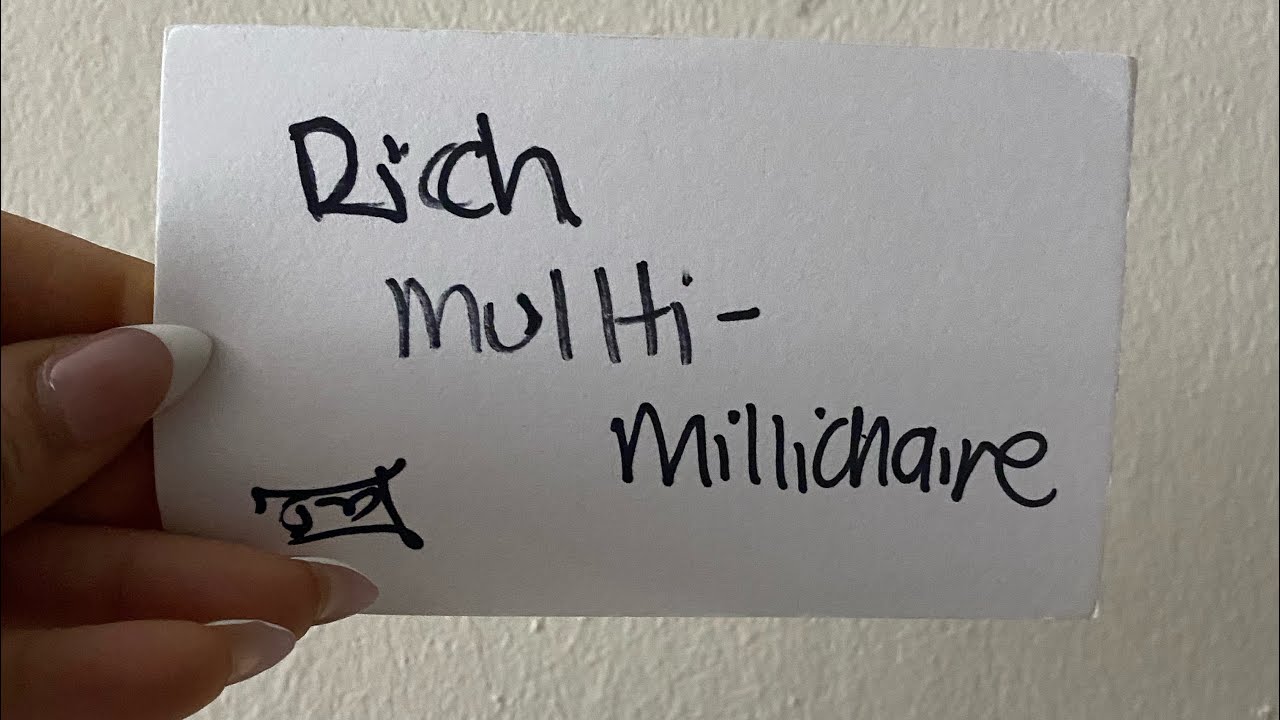 Rich
Multi-
Millionaire